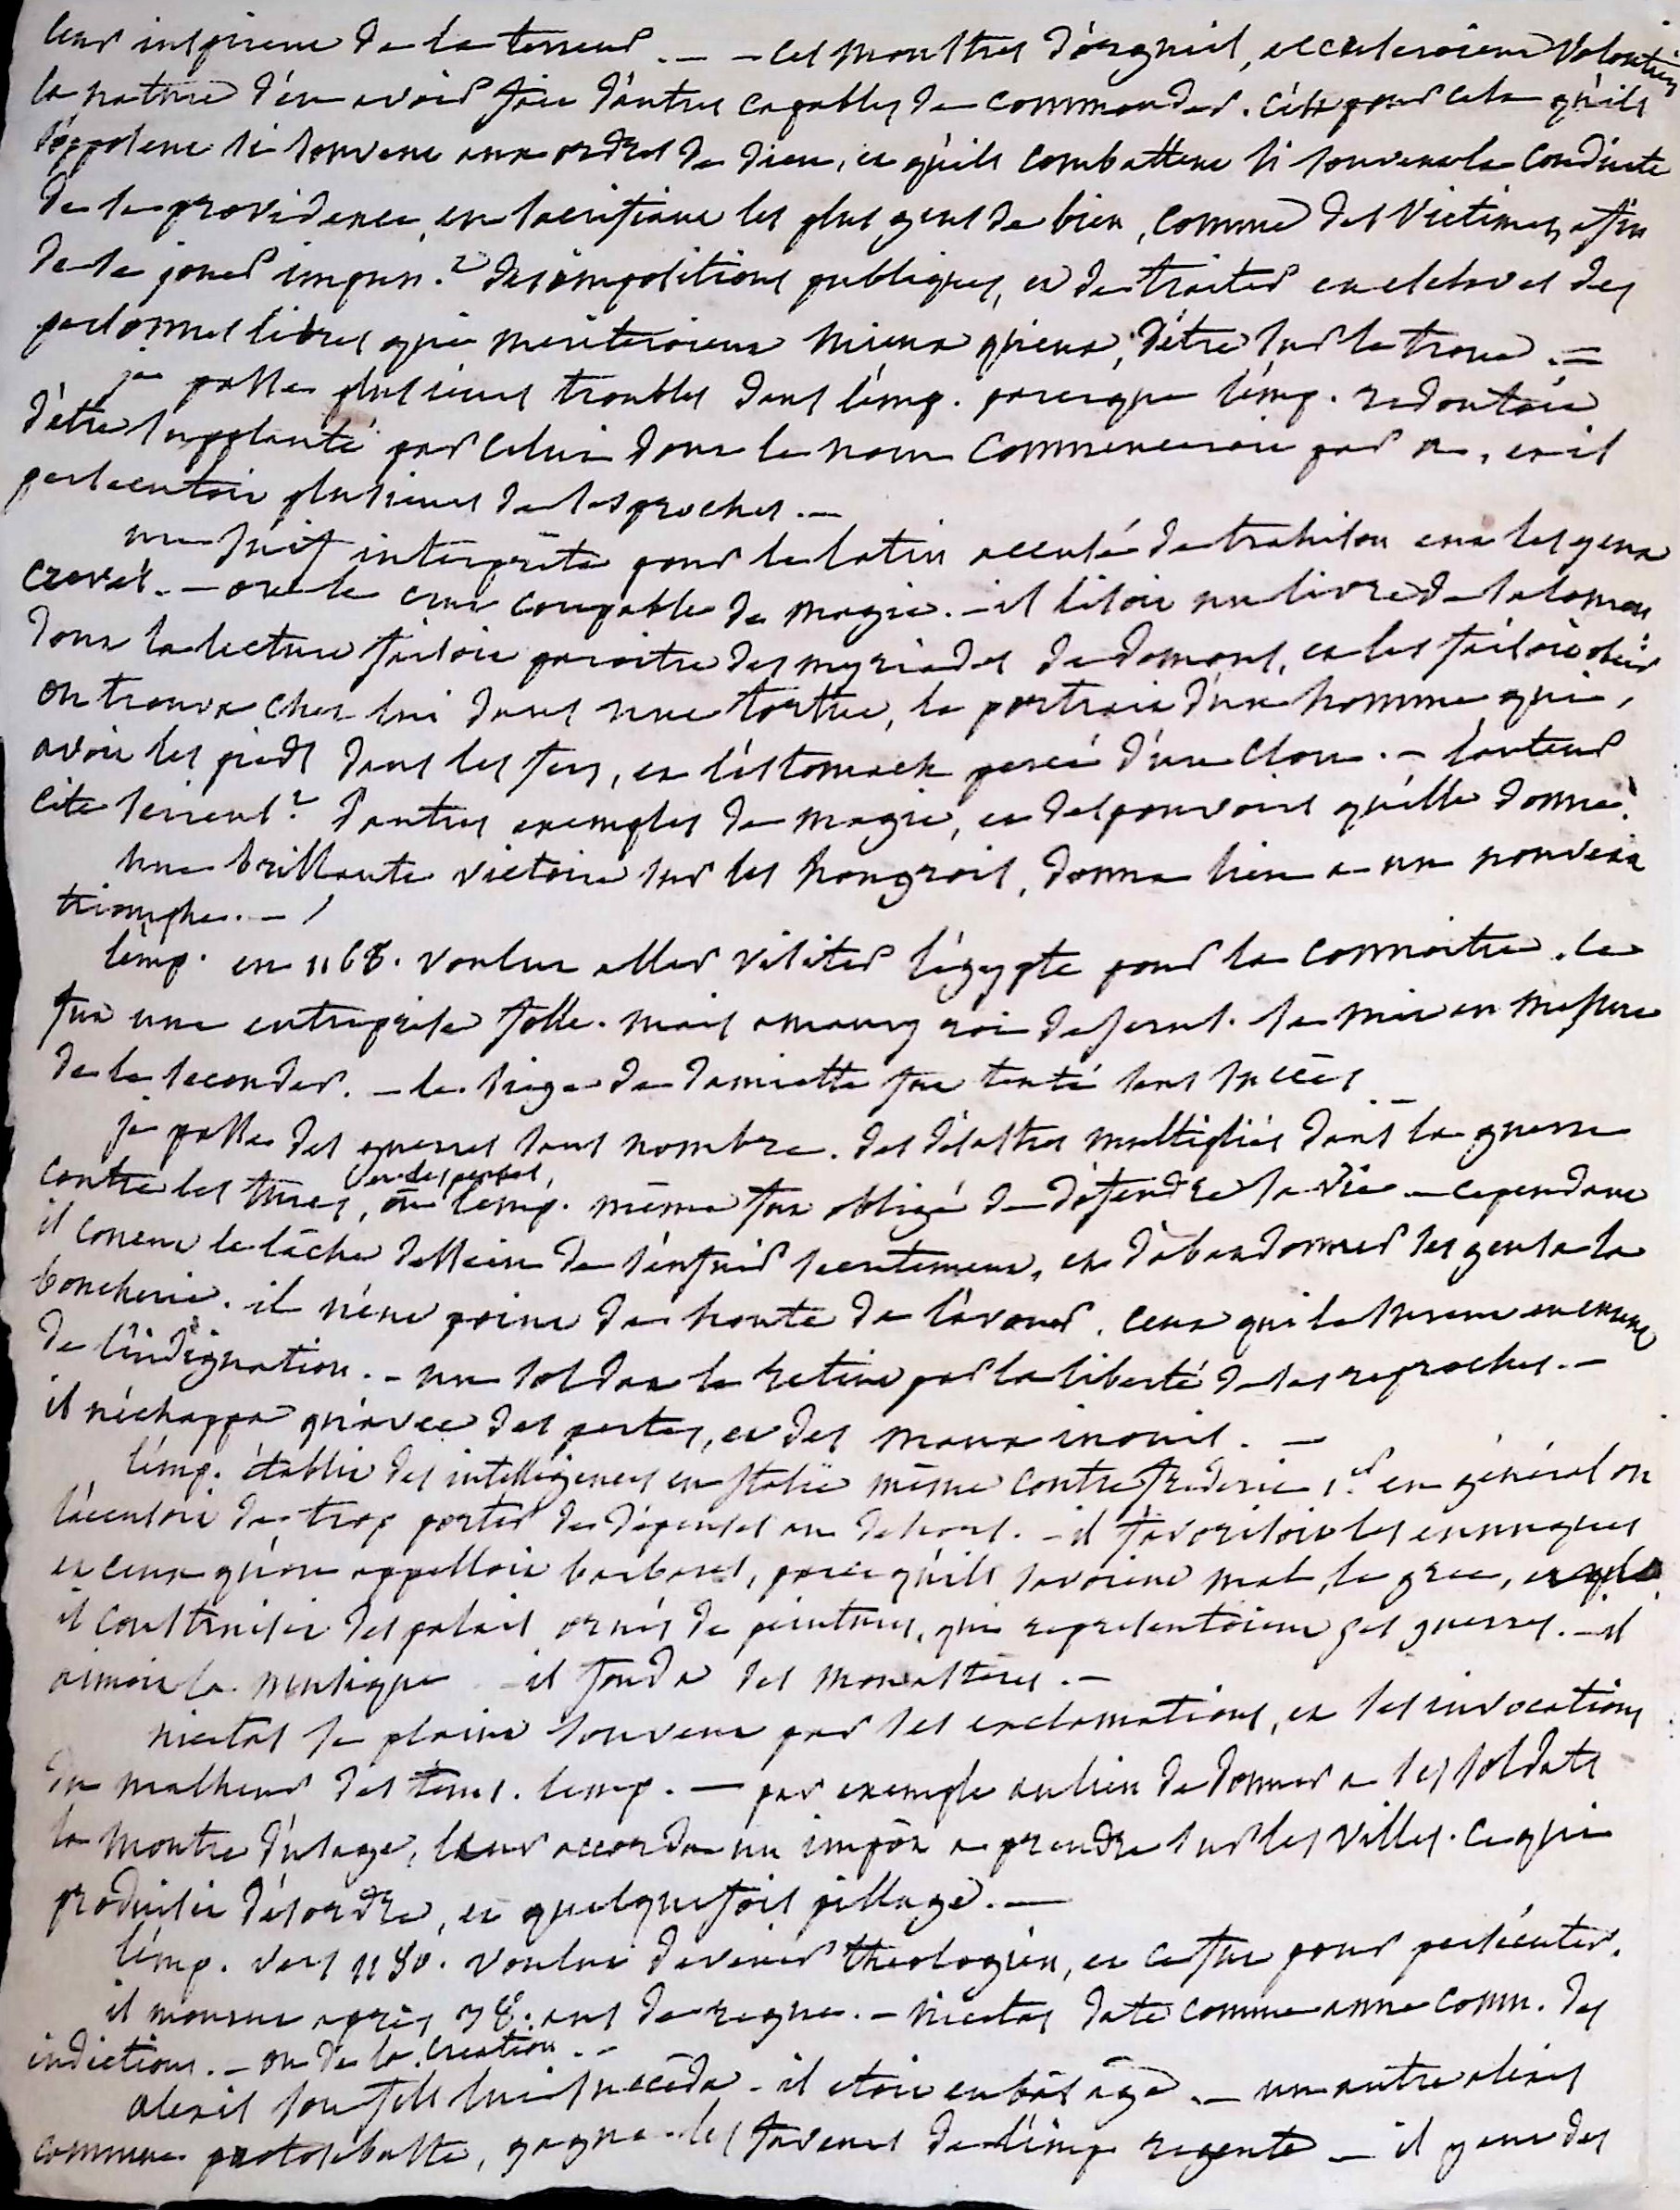 leur inspirent de la terreur. — — ces monstres d'orgueil, accuseroient volontiers
la nature d'en avoir fait d'autres capables de commander. c'est pour cela qu'ils
s'opposent si souvent aux ordres de dieu, et qu'ils combattent si souvent la conduite
de la providence, en sacrifiant les plus gens de bien, comme des victimes, afin
de se jouer impun.t des impositions publiques, et de traiter en esclaves des
personnes libres qui meriteroient mieux qu'eux, d'être sur le trone. =
je passe plusieurs troubles dans l'emp. parceque l'emp. redoutait
d'être supplanté par celui dont le nom commenceroit par a, et il
persecutoit plusieurs de ses proches. —
un juif interprète pour le latin accusé de trahison eut les yeux
crevés. — on le crut coupable de magie. — il lisoit un livre de salomon
dont la lecture faisoit paroitre des myriades de demons, et les faisoit obéir
on trouva chez lui dans une tortue, le portrait d'un homme qui,
avoit les pieds dans les fers, et l'estomach percé d'un clou. — l'auteur
cite serieus.t d'autres exemples de magie, et des pouvoirs qu'elle donne.
une brillante victoire sur les hongrois, donna lieu a un nouveau
triomphe. —
l'emp. en 1168. voulut aller visiter l'egypte pour la connoitre. ce
fut une entreprise folle. mais amaury roi de jerus. se mit en mesure
de le seconder. — le siege de damiette fut tenté sans succès
je passe des guerres sans nombre. des désastres multipliés dans la guerre
contre les turcs, et des perses, où l'emp. même fut obligé de défendre sa vie — cependant
il conçut le lâche dessein de s'enfuir secretement, et d'abandonner ses gens a la
boucherie. il n'eut point de honte de l'avouer. ceux qui le surent en eurent
de l'indignation. — un soldat le retint par la liberté de ses reproches. —
il n'échappa qu'avec des pertes, et des maux inouis. —
l'emp. établit des intelligences en italie même contre frederic 1.er en général on
l'accusoit de trop porter de dépenses au dehors. — il favorisoit les eunuques
et ceux qu'on appelloit barbares, parce qu'ils savoient mal le grec,
il construisit des palais ornés de peintures, qui representoient ses guerres. — il
aimoit la musique — il fonda des monastères. —
nicetas se plaint souvent par ses exclamations, et ses invocations
du malheur des tems. l'emp. — par exemple au lieu de donner a ses soldats
la montre d'usage, leur accorda un impôt a prendre sur les villes. ce qui
produisit désordre, et quelquefois pillage. —
l'emp. vers 1180. voulut devenir theologien, et ce fut pour persécuter.
il mourut après 38. ans de regne. — nicetas date comme anne comn. des
indictions. — ou de la creation. —
alexis son fils lui succèda — il etoit en bas age. — un autre alexis
comnene protosebaste, gagna les faveurs de l'imp. regente — il y eut des